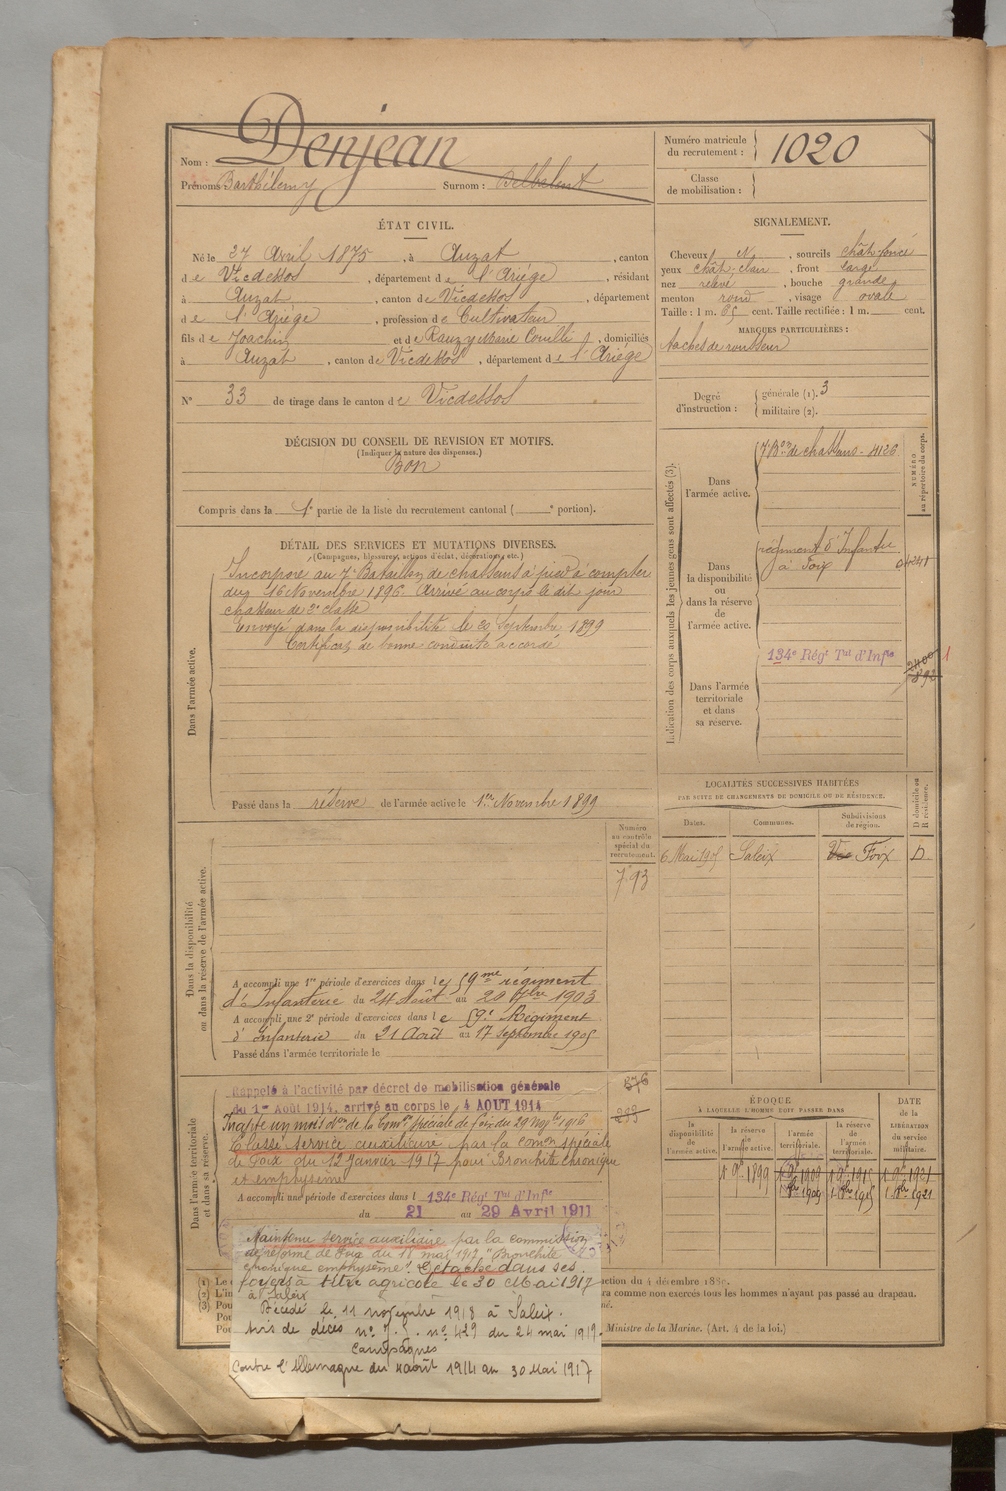 Nom : Denjean
Prénoms Barthélemy Surnom :
Numéro matricule
du recrutement : 1020
Classe
de mobilisation :
ÉTAT CIVIL.
Né le 27 Avril 1875, à Auzat, canton
de Vicdessos, département de l'Ariége, résidant
à Auzat, canton de Vicdessos, département
de l'Ariége, profession de Cultivateur
fils de Joachim et de Rauzy Marie, domiciliés
à Auzat, canton de Vicdessos, département de l'Ariége
N° 33 de tirage dans le canton de Vicdessos
SIGNALEMENT.
Cheveux N, sourcils chât. foncé
yeux chât. clair, front large
nez relevé, bouche grande
menton rond, visage ovale
Taille : 1 m. 65 cent. Taille rectifiée : 1 m. cent.
MARQUES PARTICULIÈRES :
taches de rousseur
Degré
d'instruction :
générale (1). 3
militaire (2).
DÉCISION DU CONSEIL DE REVISION ET MOTIFS.
(Indiquer la nature des dispenses.)
Bon
Compris dans la 1e partie de la liste du recrutement cantonal ( e portion).
DÉTAIL DES SERVICES ET MUTATIONS DIVERSES.
(Campagnes, blessures, actions d'éclat, décorations, etc.)
Dans l'armée active.
Incorporé au 7e Bataillon de chasseurs à pied à compter
du 16 Novembre 1896. Arrivé au corps le dit jour
chasseur de 2e classe
Envoyé dans la disponibilité le 20 Septembre 1899
Certificat de bonne conduite accordé
Passé dans la réserve de l'armée active le 1er Novembre 1899
Indication des corps auxquels les jeunes gens sont affectés (3).
NUMÉRO
au répertoire du corps.
Dans
l'armée active.
7 Bon de chasseurs - 4126
Dans
la disponibilité
ou
dans la réserve
de
l'armée active.
régiment d'Infanterie
à Foix
134e Régt Tal d'Infie
Dans l'armée
territoriale
et dans
sa réserve.
LOCALITÉS SUCCESSIVES HABITÉES
PAR SUITE DE CHANGEMENTS DE DOMICILE OU DE RÉSIDENCE.
Dates.
Communes.
Subdivisions
de région.
D domicile ou
R résidence.
6 Mai 1905 Saleix Vic Foix D.
Numéro
au contrôle
spécial du
recrutement.
793
Dans la disponibilité
ou dans la réserve de l'armée active.
A accompli une 1re période d'exercices dans le 59me régiment
d'Infanterie du 24 Août au 20 7bre 1903
A accompli une 2e période d'exercices dans le 59e Régiment
d'Infanterie du 21 Août au 17 septembre 1905
Passé dans l'armée territoriale le
Dans l'armée territoriale
et dans sa réserve.
Rappelé à l'activité par décret de mobilisation générale
du 1er Août 1914, arrivé au corps le 4 AOUT 1914
576
Inapte un mois don de la Comon spéciale de Foix du 29 Novbre 1916
Classé service auxiliaire par la comon spéciale
de Foix du 12 Janvier 1917 pour Bronchite chronique
et emphysème
A accompli une période d'exercices dans l 134e Régt Tal d'Infie
du 21 au 29 Avril 1911
ÉPOQUE
À LAQUELLE L'HOMME DOIT PASSER DANS
la
disponibilité
de
l'armée active.
la réserve
de
l'armée active.
l'armée
territoriale.
la réserve
de
l'armée
territoriale.
DATE
de la
LIBÉRATION
du service
militaire.
1 9bre 1899 1 9bre 1909 1 9bre 1915 1 9bre 1921
1 8bre 1909 1 8bre 1915 1 8bre 1921
Maintenu service auxiliaire par la commission
de réforme de Foix du 18 mai 1917 "Bronchite
chronique emphysème". Détaché dans ses
foyers à titre agricole le 30 Mai 1917
à Saleix
Décédé le 11 novembre 1918 à Saleix.
Avis de décès n° 7. J. n° 429 du 24 mai 1919.
Campagnes
Contre l'Allemagne du 4 août 1914 au 30 Mai 1917
(1) Le
(2) L'in
(3) Pou
Pou
Pou
ction du 4 décembre 1889.
ra comme non exercés tous les hommes n'ayant pas passé au drapeau.
Ministre de la Marine. (Art. 4 de la loi.)